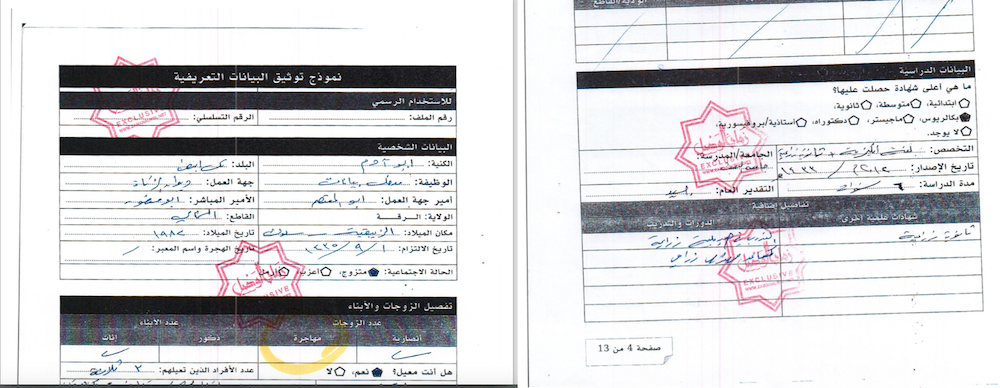 نموذج توثيق البيانات التعريفية
للاستخدام الرسمي
رقم الملف: الرقم التسلسلي:
البيانات الشخصية
الكنية: ابو آدم البلد: تل ابيض
الوظيفة: مدخل بيانات جهة العمل: ديوان الزكاة
أمير جهة العمل: ابو المعتصم الأمير المباشر: ابو منصور
الولاية: الرقة القاطع: الشمالي
مكان الميلاد: سلوك تاريخ الميلاد: ١٩٨٢
تاريخ الالتزام: تاريخ الهجرة واسم المعبر: /
الحالة الاجتماعية: متزوج، أعزب، أرمل
تفصيل الزوجات والأبناء
عدد الزوجات عدد الأبناء
أنصارية مهاجرة ذكور إناث
هل أنت معيل؟ نعم، لا عدد الأفراد الذين تعيلهم: ٣ ثلاثة
الولاية/القاطع
البيانات الدراسية
ما هي أعلى شهادة حصلت عليها؟
ابتدائية، متوسطة، ثانوية،
بكالريوس، ماجيستر، دكتوراه، أستاذية/بروفيسورية،
لا يوجد.
التخصص: لغة انكليزية + ثانوية زراعية الجامعة/المدرسة:
تاريخ الإصدار: ٢٠١٢م / ١٤٣٣
مدة الدراسة: ٦ سنوات التقدير العام: جيد
تفاصيل إضافية
شهادات علمية أخرى الدورات والتدريب
ثانوية زراعية
صفحة 4 من 13
EXCLUSIVE
EXCLUSIVE
EXCLUSIVE
EXCLUSIVE